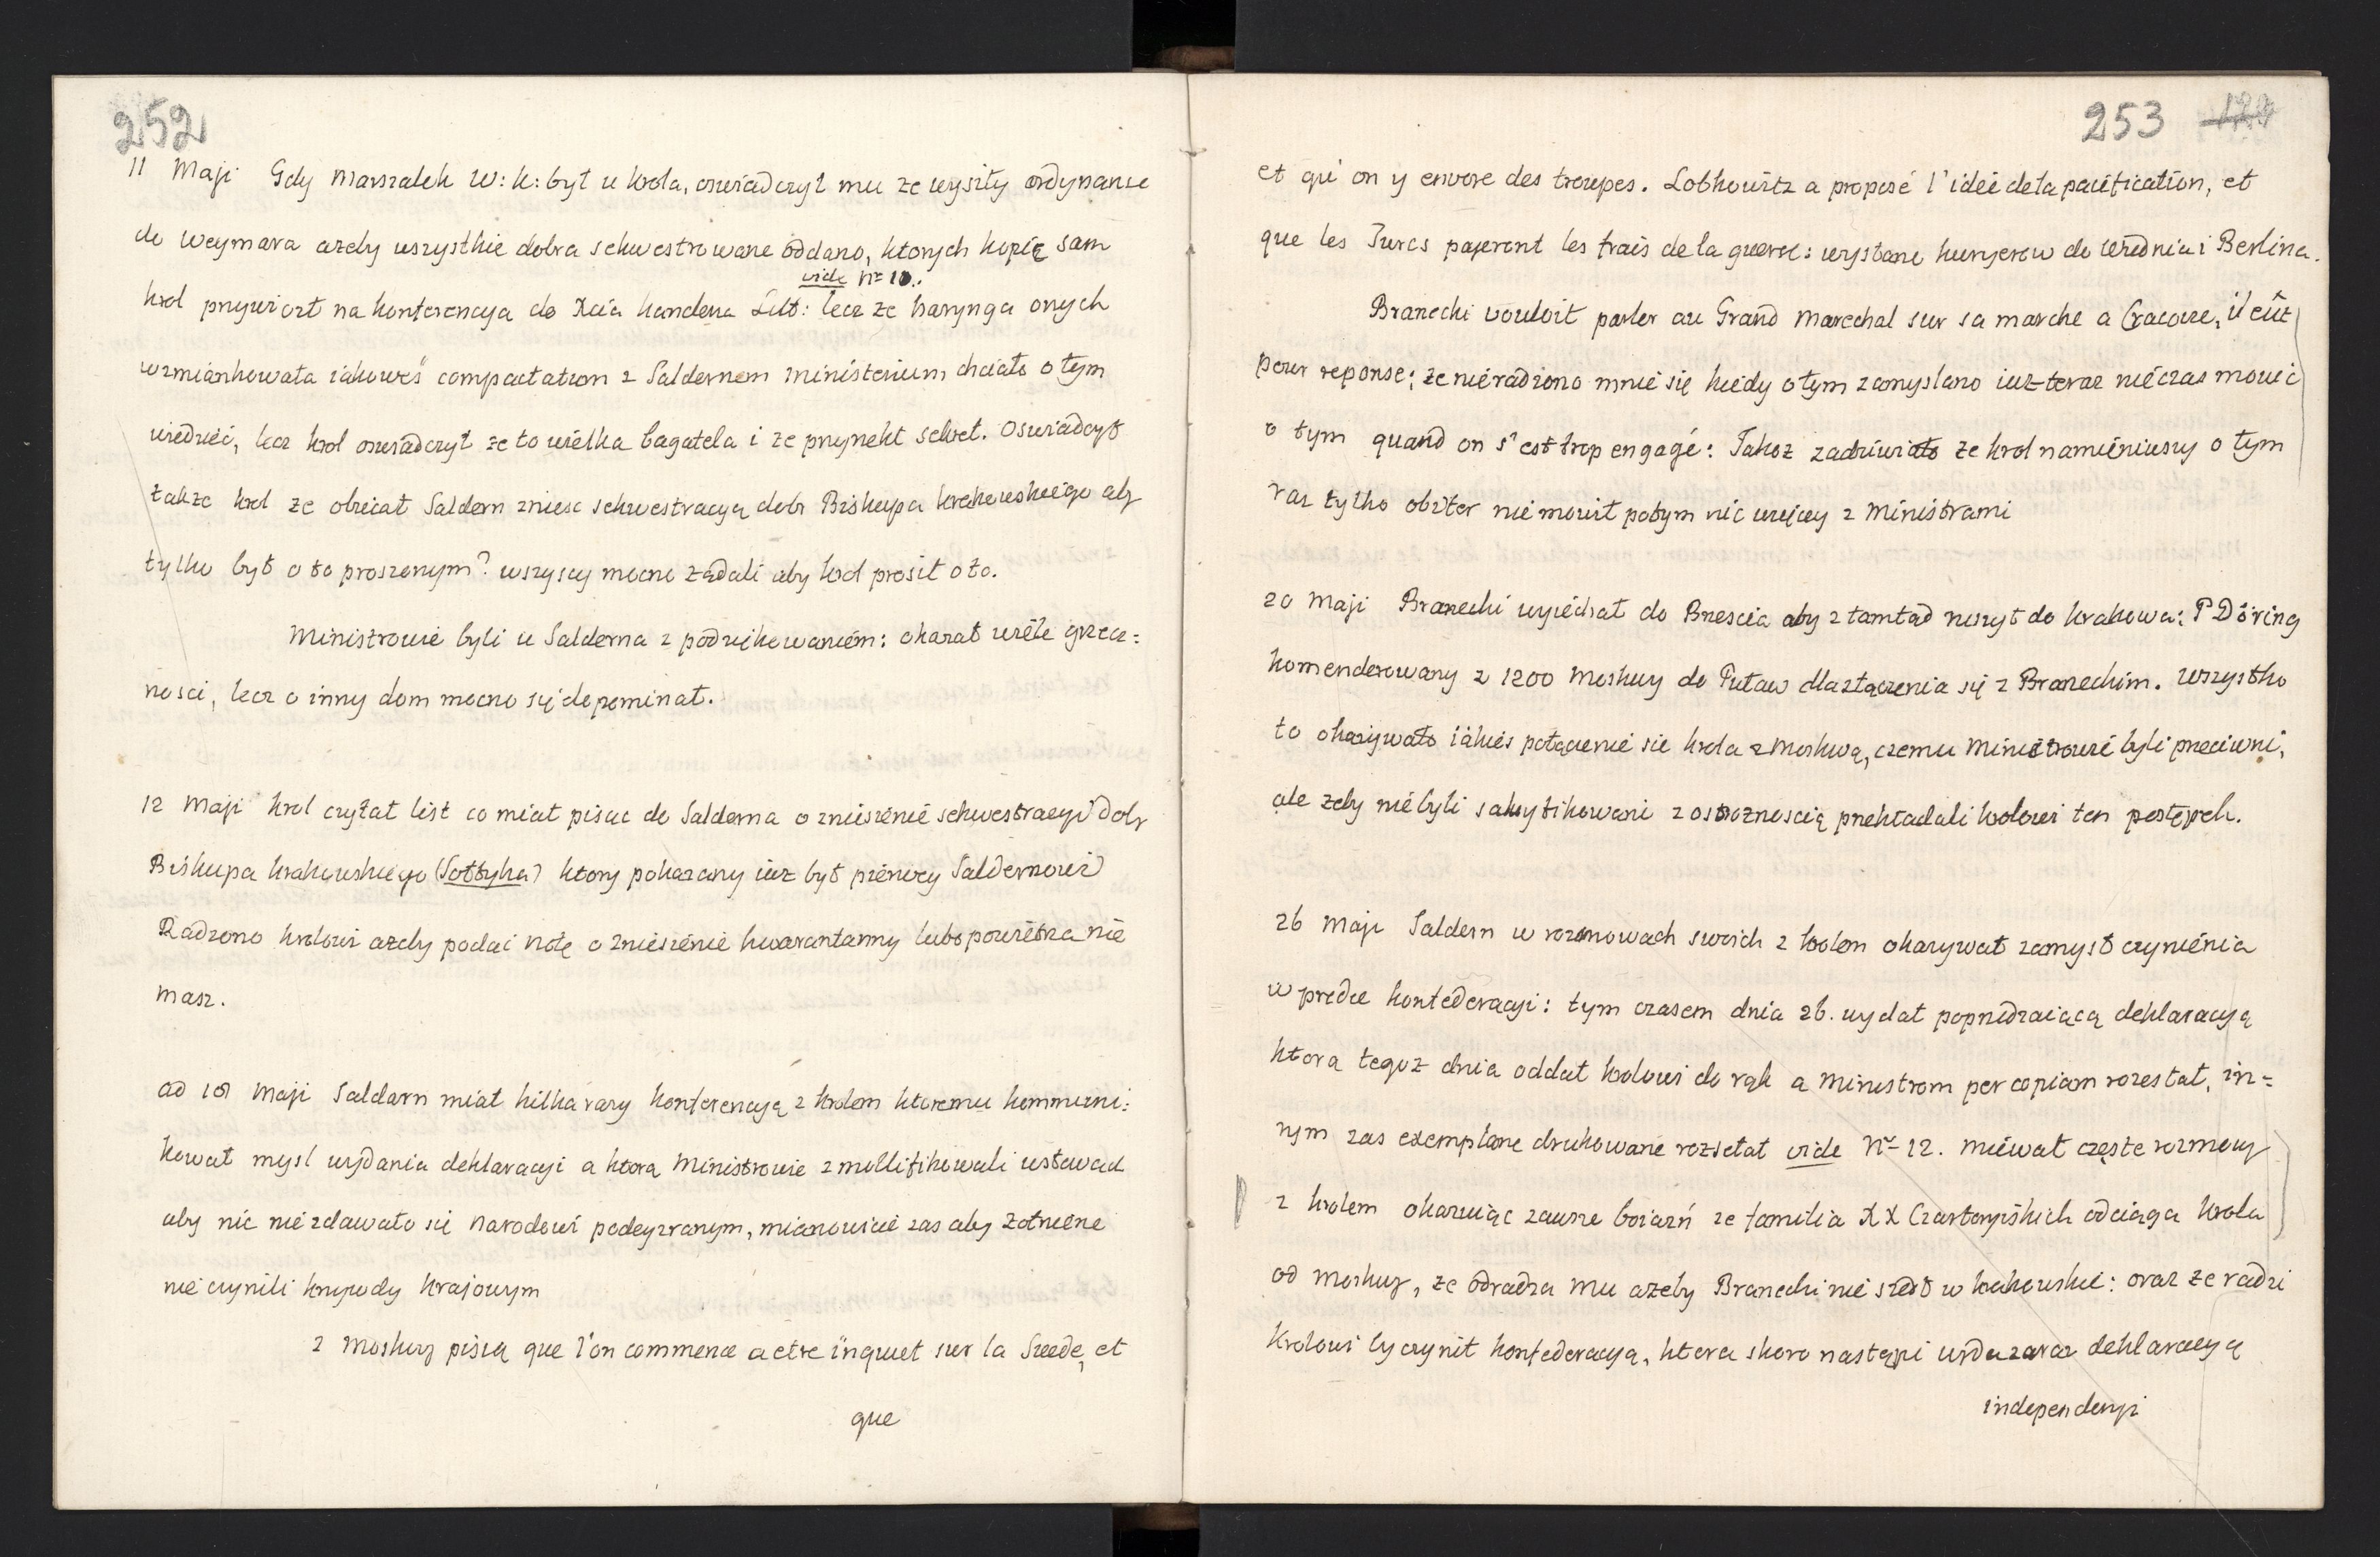 252
11 Maji Gdy Marszalek W: K: był u krola, oswiadczył mu ze wyszły ordynanse
do Weymara azeby wszystkie dobra sekwestrowane oddano, ktorych kopię sam
vide N= 10.
krol przywiozł na konferencya do Xcia kanclerza Litt: lecz ze harynga onych
wzmiankowata iakowes compactation z Saldernem ministerium chciało o tym
wiedziec, lecz krol oswiadczył ze to wielka bagatela i ze przyrzekł sekret. Oswiadczył
także krol ze obiecał Saldern zniesc sekwestracyą dobr Biskupa krakowskiego aby
tylko był o to proszonym? wszyscy mocno żądali aby krol prosił o to.
Ministrowie byli u Salderna z podziękowaniem: okazał wiele grzecz=
nosci, lecz o inny dom mocno się dopominał.
12 Maji krol czytał list co miał pisac do Salderna o zniesienie sekwestracyi dobr
Biskupa krakowskiego (Sołtyka) ktory pokazany iuz był pierwey Saldernowi
Radzono krolowi azeby podać notę o zniesienie kwarantanny lubo powietrza nie
masz.
ad 18 Maji Saldern miał kilka razy konferencyą z krolem ktoremu kommuni:
kował mysl wydania deklaracyi a ktorą Ministrowie zmollifikowali ustawad
aby nic nie zdawało się narodowi podeyzranym, mianowicie zas aby żołnierze
nie czynili krzywdy krajowym
z Moskwy piszą que l'on commence a etre inquiet sur la Suede, et
que
253 121
et qu'on y envoie des troupes. Lobkowitz a proposé l'idée de la pacification, et
que les Turcs payeront les frais de la guerre: wysłano kuryerow do Wiednia i Berlina.
Branecki vouloit parler au Grand Marechal sur sa marche a Cracovie, il eût
pour reponse; ze nie radzono mnie się kiedy o tym zamyslano iuz teraz nie czas mowic
o tym quand on s'est trop engagé: Takoz zadziwiało ze krol namieniwszy o tym
raz tylko obiter nie mowił potym nic więcey z Ministrami
20 Maji Branecki wyiechał do Brescia aby z tamtąd ruszył do krakowa; P Döring
komenderowany z 1200 Moskwy do Puław dla złączenia się z Braneckim. Wszystko
to okazywało iakies połączenie sie krola z Moskwą, czemu Ministrowie byli przeciwni,
ale zeby nie byli sakryfikowani z ostroznoscią przekładali krolowi ten postępek.
26 Maji Saldern w rozmowach swoich z krolem okazywał zamysł czynienia
w prędce konfederacyi: tym czasem dnia 26. wydał poprzedzaiącą deklaracyą
ktorą tegoz dnia oddał krolowi do rąk a Ministrom per copiam rozesłał, in=
nym zas exemplarze drukowane rozsełał vide N= 12. miewał częste rozmowy
z krolem okazuiąc zawsze boiazń ze familia XX Czartoryiskich odciąga krola
od Moskwy, ze odradza mu azeby Branecki nie szedł w krakowskie: oraz ze radzi
krolowi by czynił konfederacyą, ktora skoro nastąpi wyda zaraz deklaracyą
independencyi